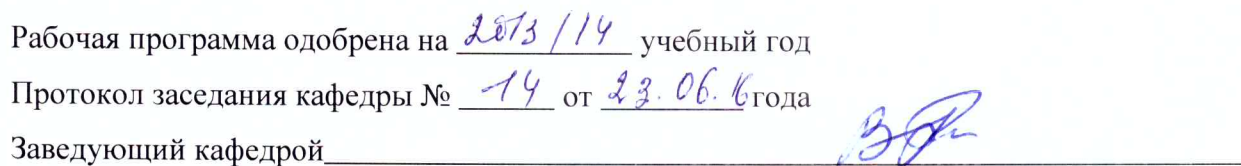 Рабочая программа одобрена на 2013/14 учебный год
Протокол заседания кафедры № 14 от 23.06.16 года
Заведующий кафедрой